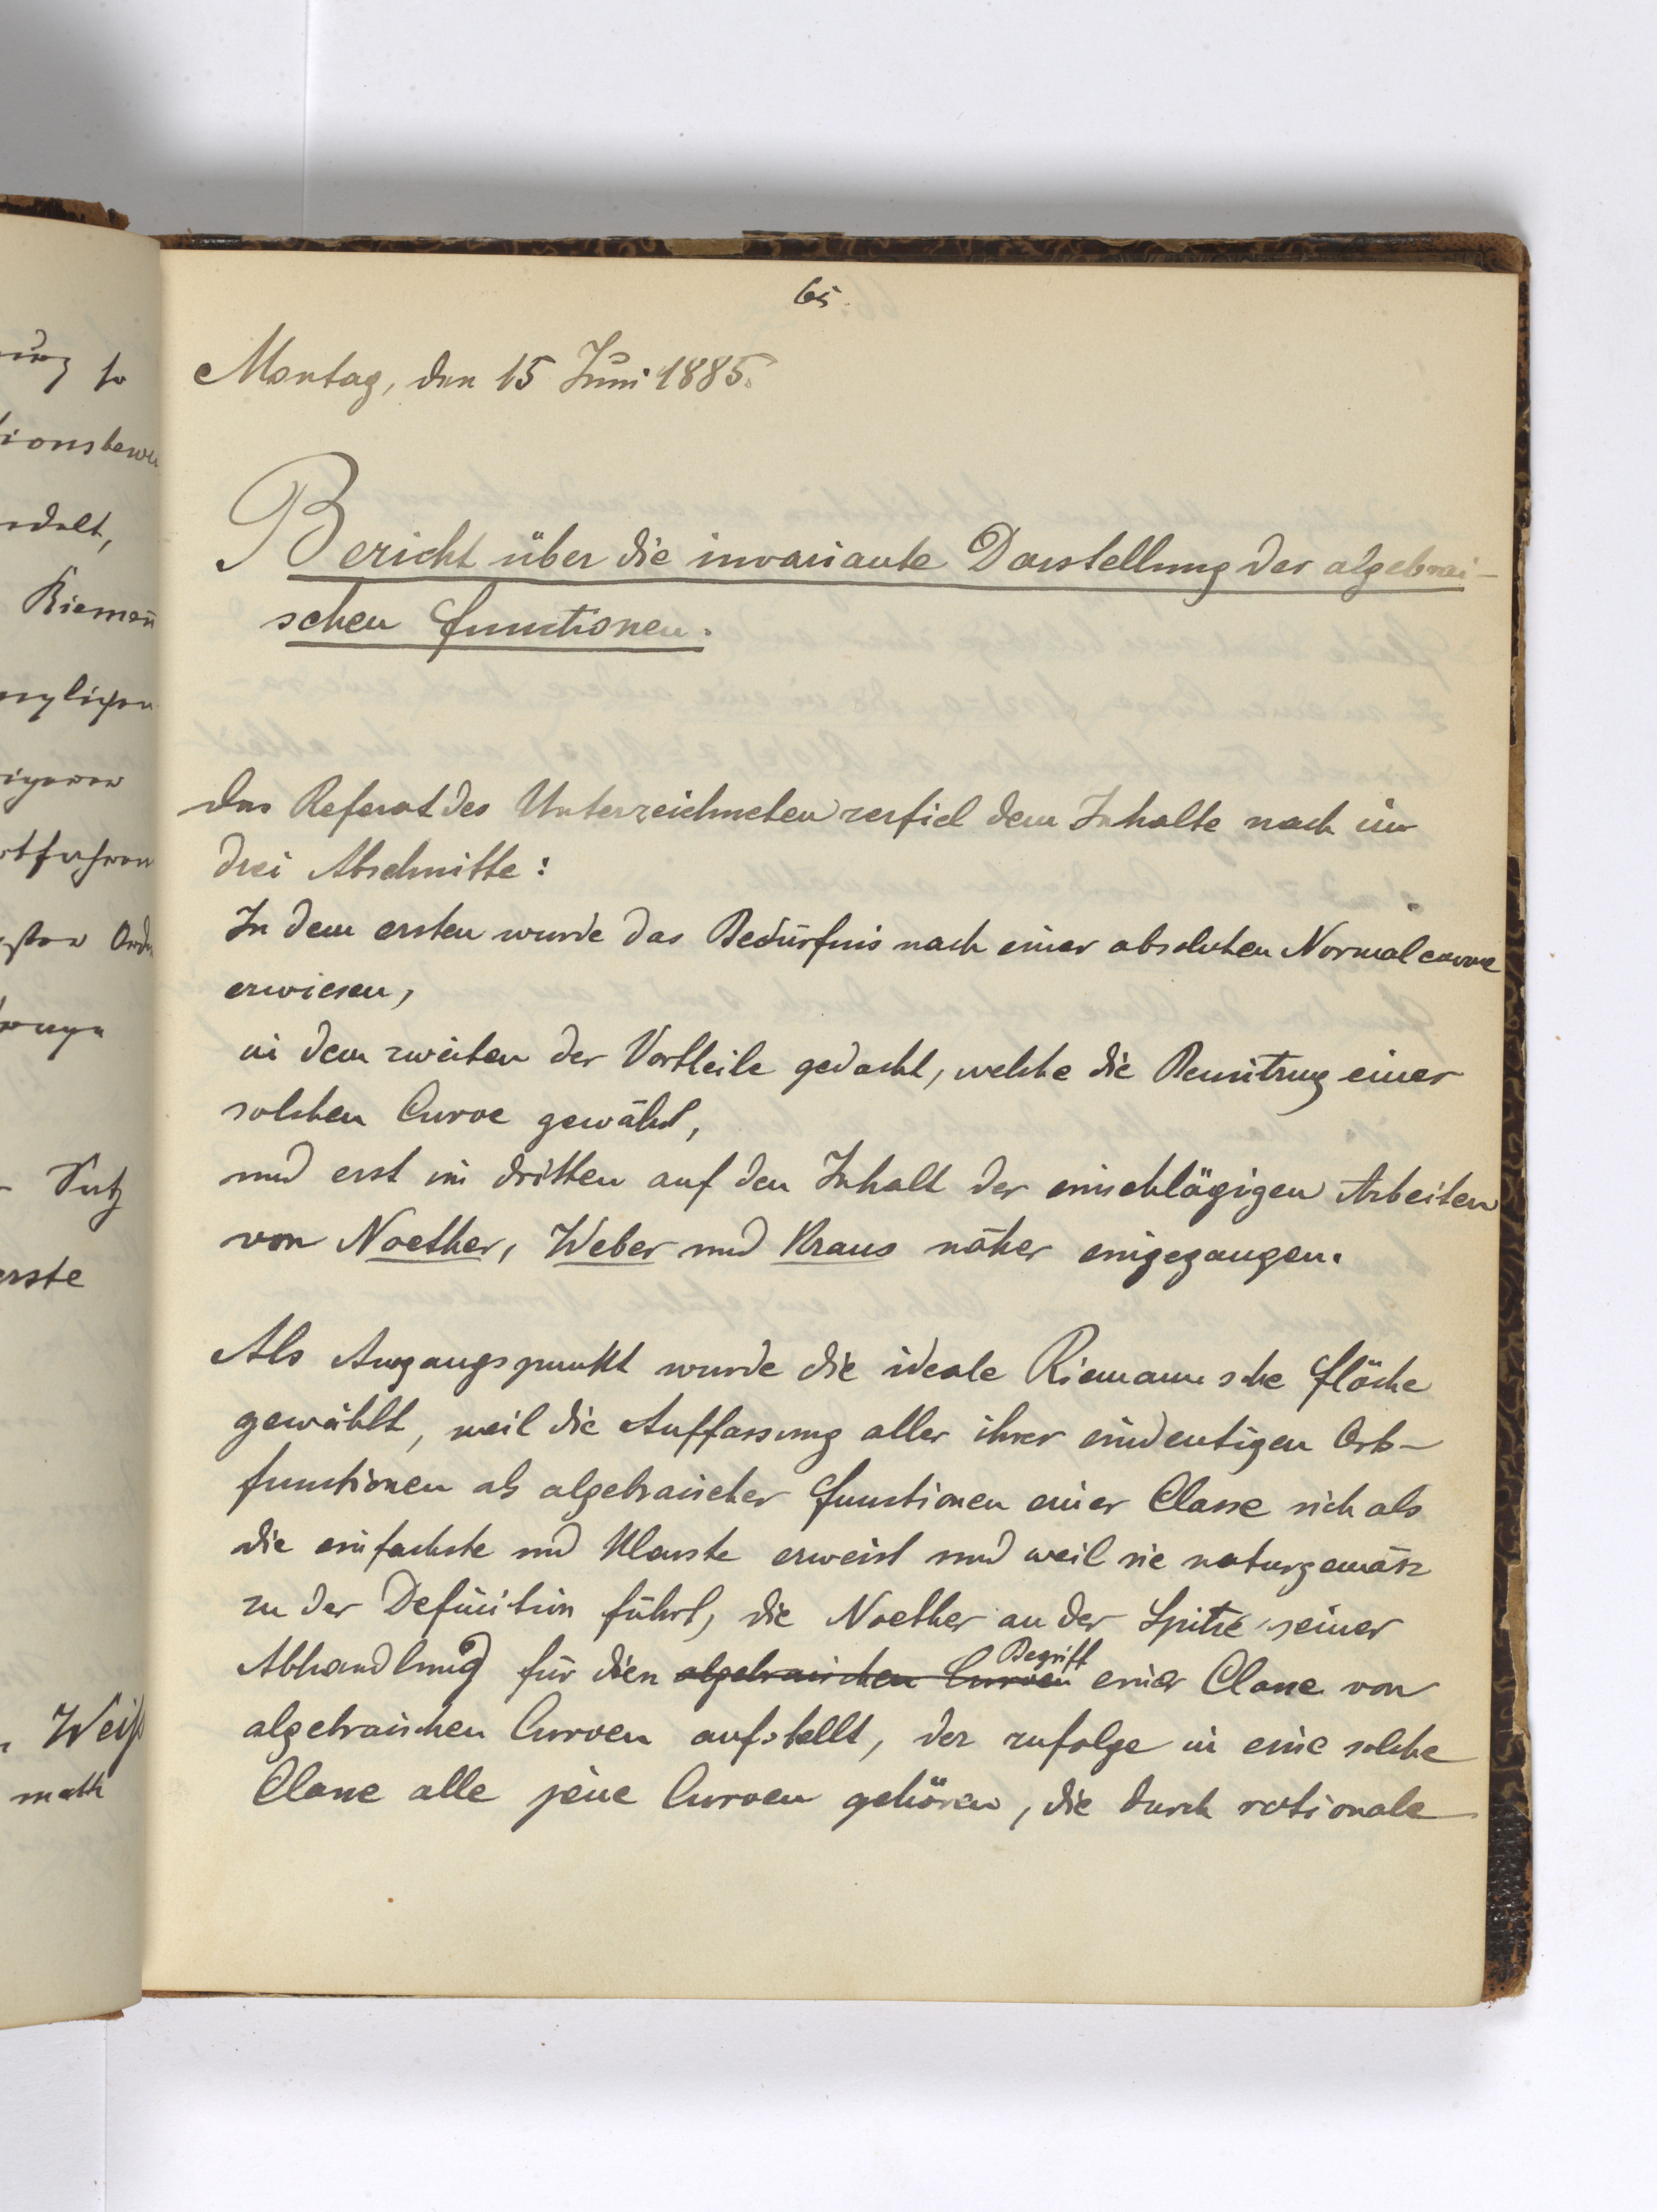 65.
Montag, den 15 Juni 1885.
Bericht über die invariante Darstellung der algebrai-
schen Functionen.
Das Referat des Unterzeichneten zerfiel dem Inhalte nach in
drei Abschnitte:
In dem ersten wurde das Bedürfnis nach einer absoluten Normalcurve
erwiesen,
in dem zweiten der Vortheile gedacht, welche die Benützung einer
solchen Curve gewährt,
und erst im dritten auf den Inhalt der einschlägigen Arbeiten
von Noether, Weber und Kraus näher eingegangen.
Als Ausgangspunkt wurde die ideale Riemannsche Fläche
gewählt, weil die Auffassung aller ihrer eindeutigen Orts-
functionen als algebraischer Functionen einer Classe sich als
die einfachste und klarste erweist und weil sie naturgemäsz
zu der Definition führt, die Noether an der Spitze seiner
Abhandlung für den algebraischen Curven Begriff einer Classe von
algebraischen Curven aufstellt, der zufolge in eine solche
Classe alle jene Curven gehören, die durch rationale
ung so
ionsbewe
ndelt,
Riemañ
nglichen
igeren
rtfahren
gsten Ordn
Satz
erste
Weiß
math